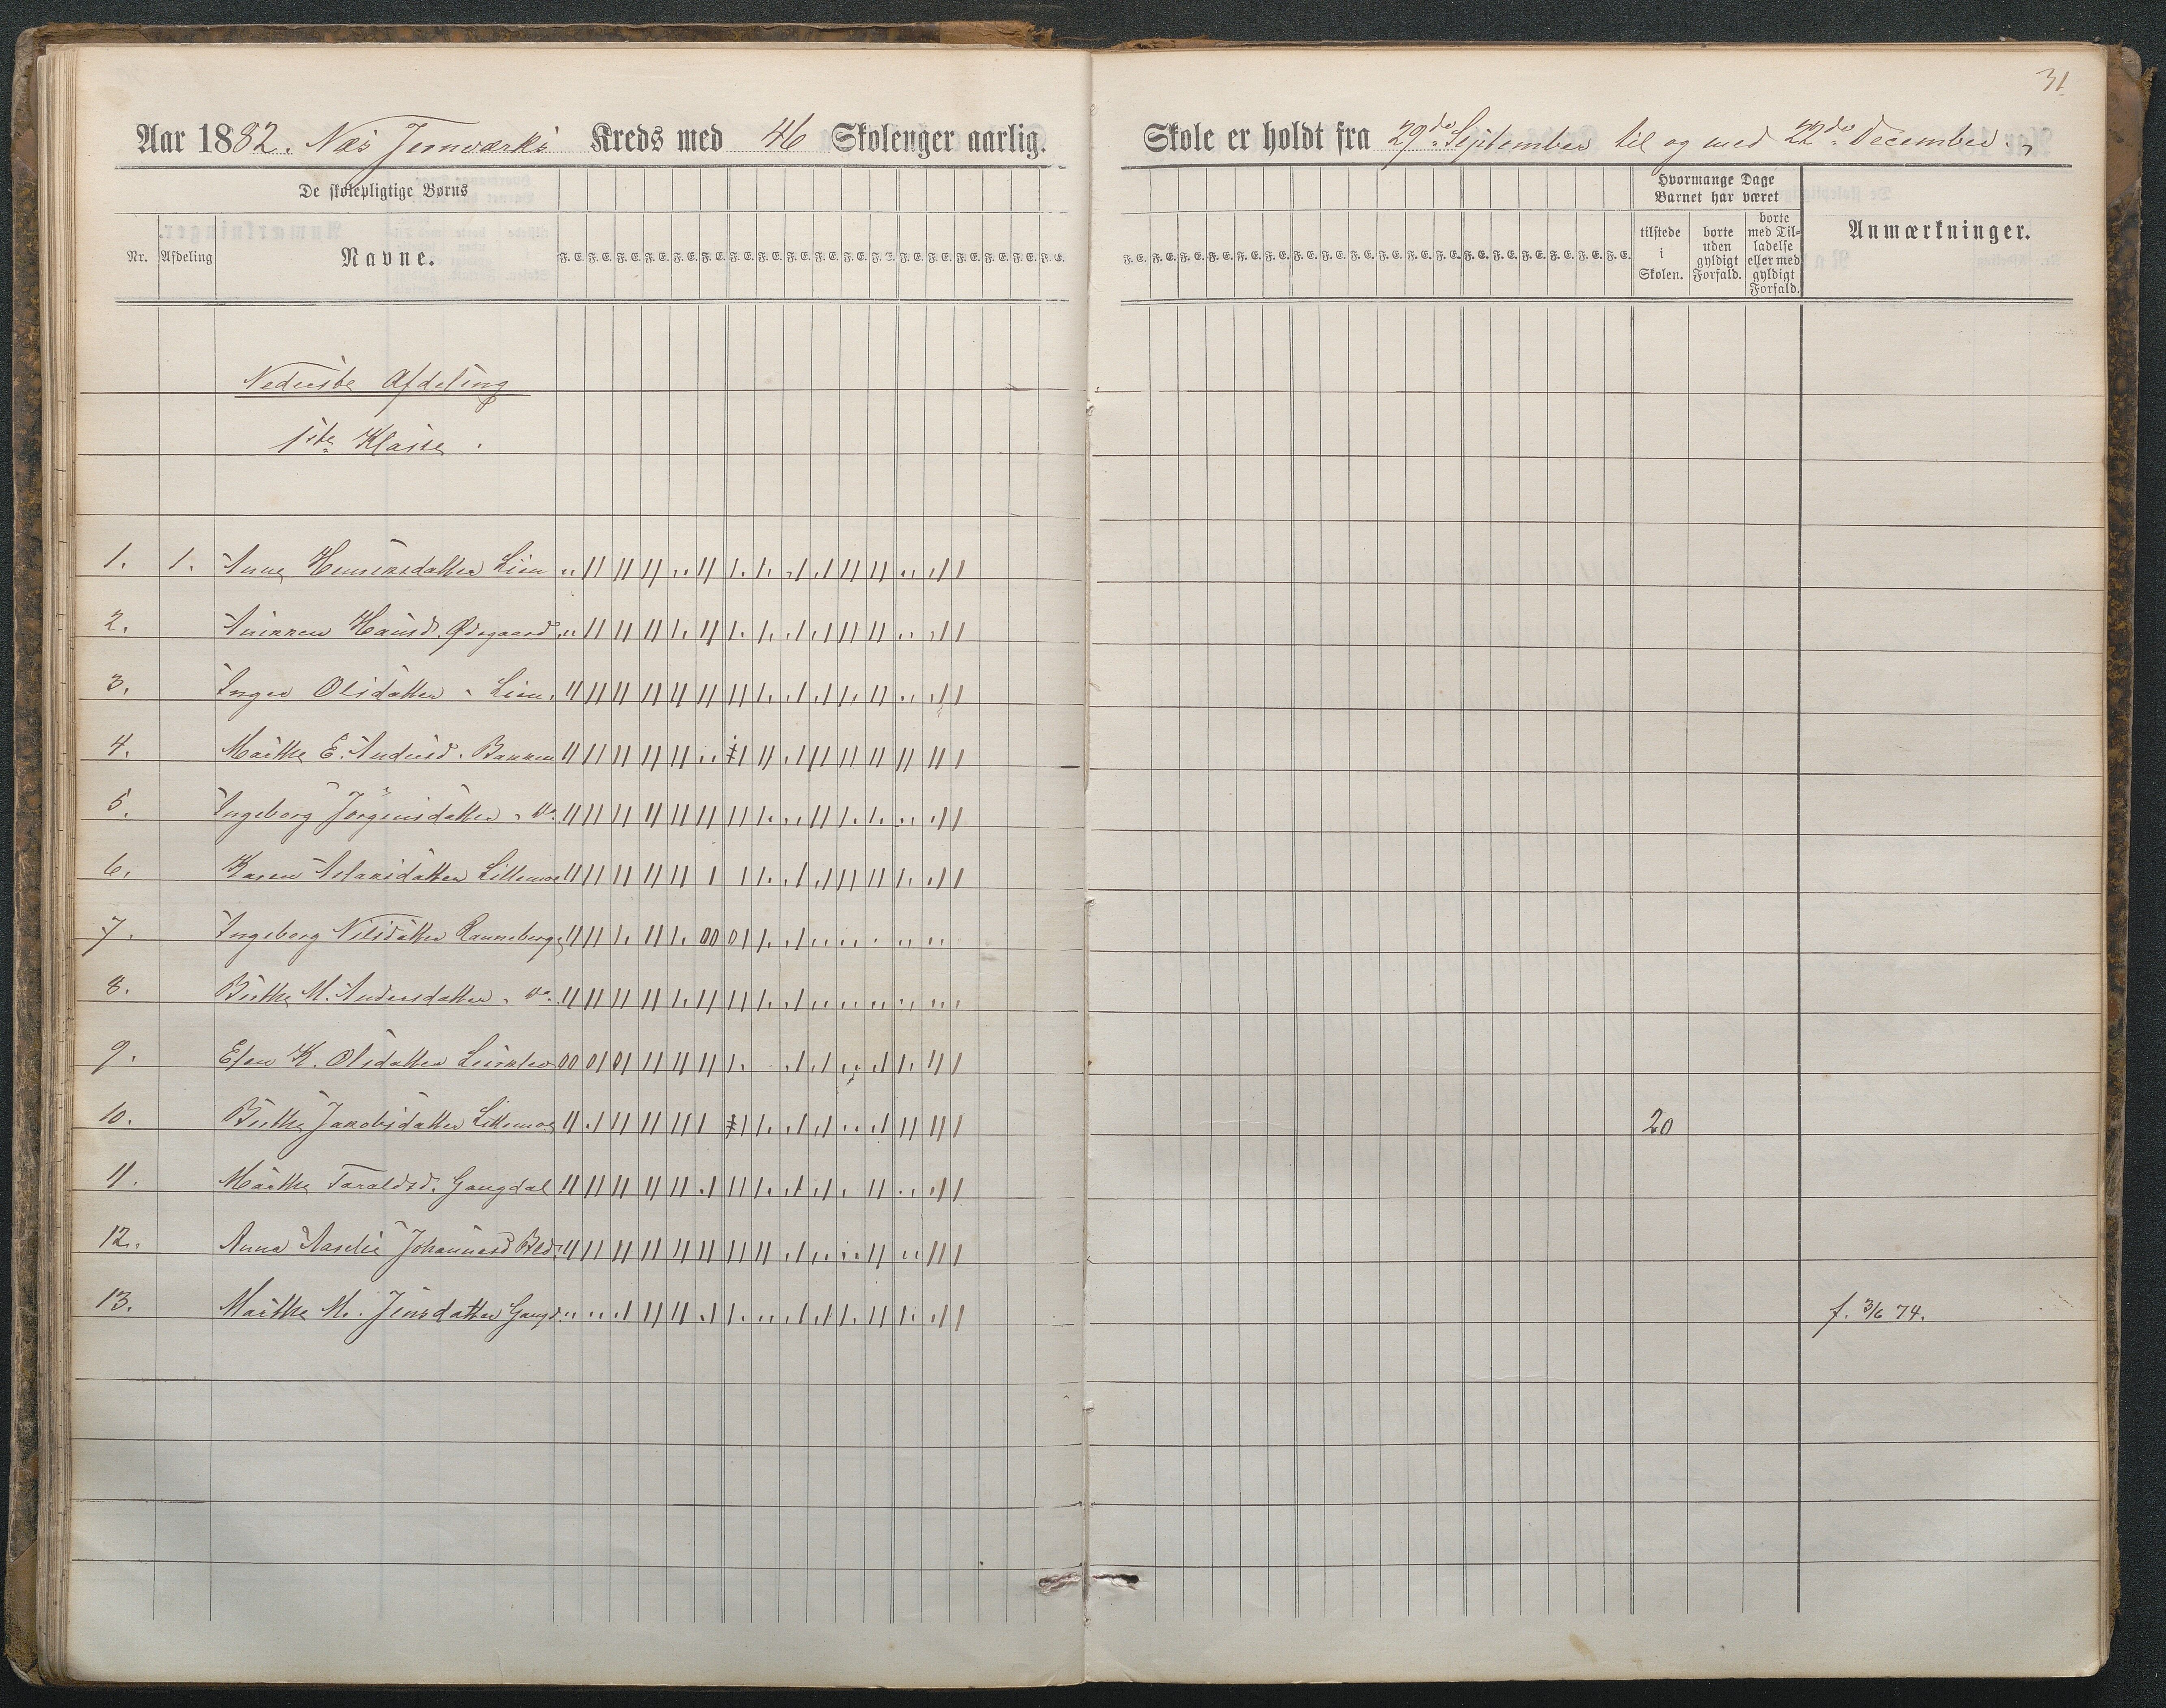 31
Aar 1882. Næs Jernværks Kreds med 46 Skolenger aarlig. Skole er holdt fra 29de September til og med 22de December.
De skolepligtige Børns
Hvormange Dage Barnet har været
Nr. Afdeling Navne. F. E. F. E. F. E. F. E. F. E. F. E. F. E. F. E. F. E. F. E. F. E. F. E. F. E. F. E. F. E. F. E. F. E. F. E.
F. E. F. E. F. E. F. E. F. E. F. E. F. E. F. E. F. E. F. E. F. E. F. E. F. E. F. E. F. E. F. E. F. E. F. E.
tilstede i Skolen.
borte uden gyldigt Forfald.
borte med Tilladelse eller med gyldigt Forfald.
Anmærkninger.
Nederste Afdeling
1ste Klasse.
1. 1. Anne Henriksdatter Lien
2. Annken Hansd. Ødegaard
3. Inger Olsdatter " Lien.
4. Marthe E. Andersd. Bakken
5. Ingeborg Jörgensdatter " do.
6. Karen Aslaksdatter Lillemoe
7. Ingeborg Nilsdatter Ranneberg
8. Birthe M. Andersdatter " do.
9. Elen K. Olsdatter Leirklev
10. Birthe Jakobsdatter Lillemoe 20
11. Marthe Taraldsd. Gangdal
12. Anna Aaselie Johannesd
13. Marthe M. Jensdatter Gangd. f. 3/6 74.